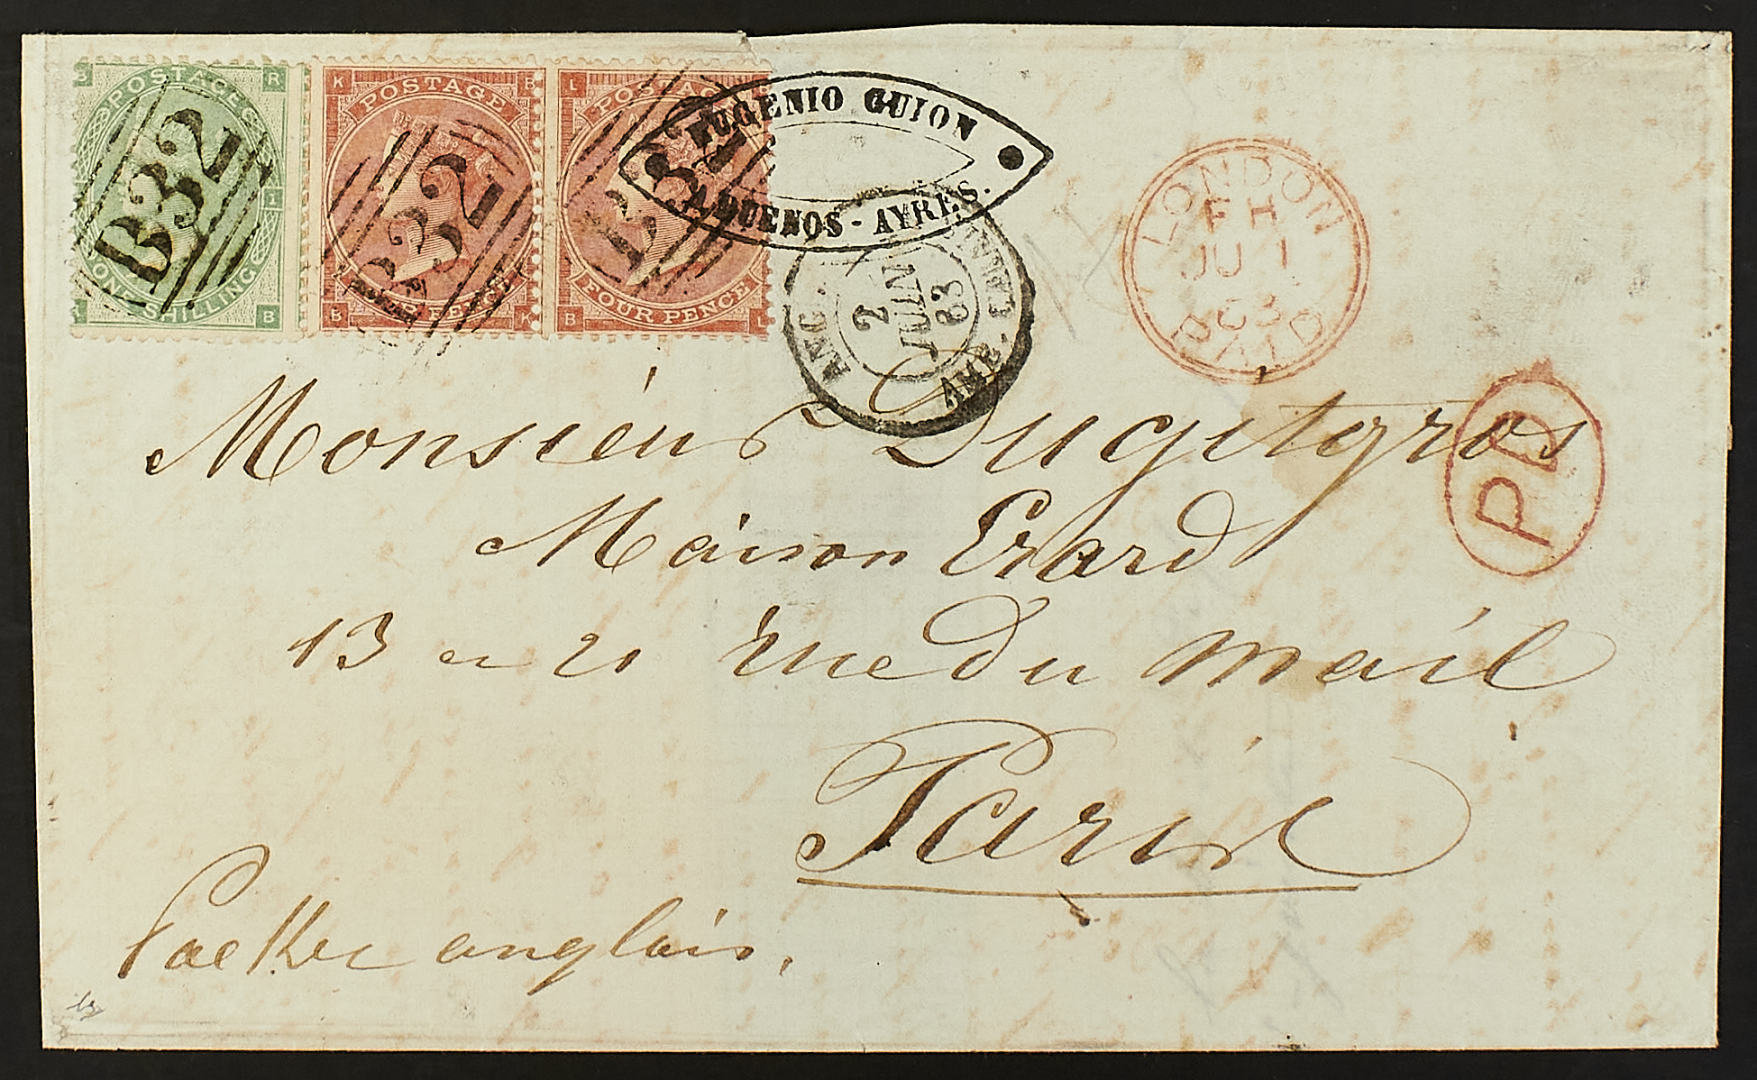 POSTAGE
ONE SHILLING
R
B
B32
K B
POSTAGE
B K
B32
L
POSTAGE
FOUR PENCE
B
B32
EUGENIO GUION
BUENOS-AYRES.
ANG.
2
JUIN
63
AMB. CALAIS
LONDON
FH
JU 1
63
PAID
PD
Monsieur Dugitgros
Maison Erard
13 a 21 rue du mail
Paris
Packet anglais.